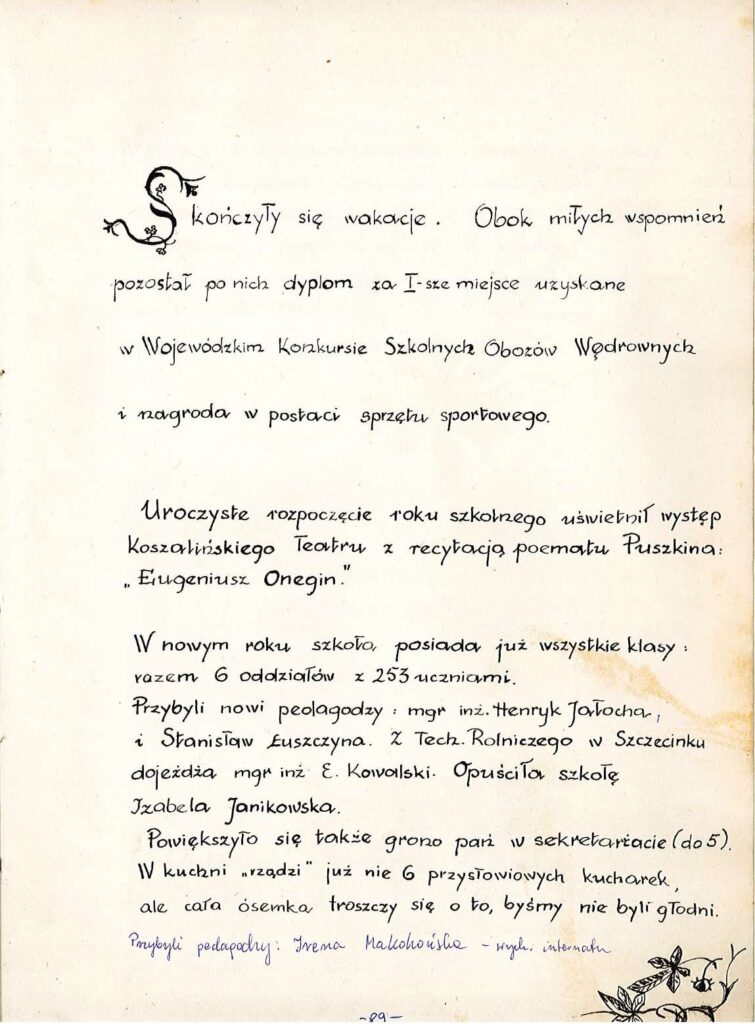 Skończyły się wakacje. Obok miłych wspomnień
pozostał po nich dyplom za I-sze miejsce uzyskane
w Wojewódzkim Konkursie Szkolnych Obozów Wędrownych
i nagroda w postaci sprzętu sportowego.
Uroczyste rozpoczęcie roku szkolnego uświetnił występ
Koszalińskiego Teatru z recytacją poematu Puszkina:
„Eugeniusz Onegin."
W nowym roku szkoła posiada już wszystkie klasy:
razem 6 oddziałów z 253 uczniami.
Przybyli nowi pedagodzy: mgr inż. Henryk Jałocha,
i Stanisław Łuszczyna. Z Tech. Rolniczego w Szczecinku
dojeżdża mgr inż E. Kowalski. Opuściła szkołę
Izabela Janikowska.
Powiększyło się także grono pań w sekretariacie (do 5).
W kuchni „rządzi" już nie 6 przysłowiowych kucharek,
ale cała ósemka troszczy się o to, byśmy nie byli głodni.
Przybyli pedagodzy: Irena Makohońska - wych. internatu
-89-